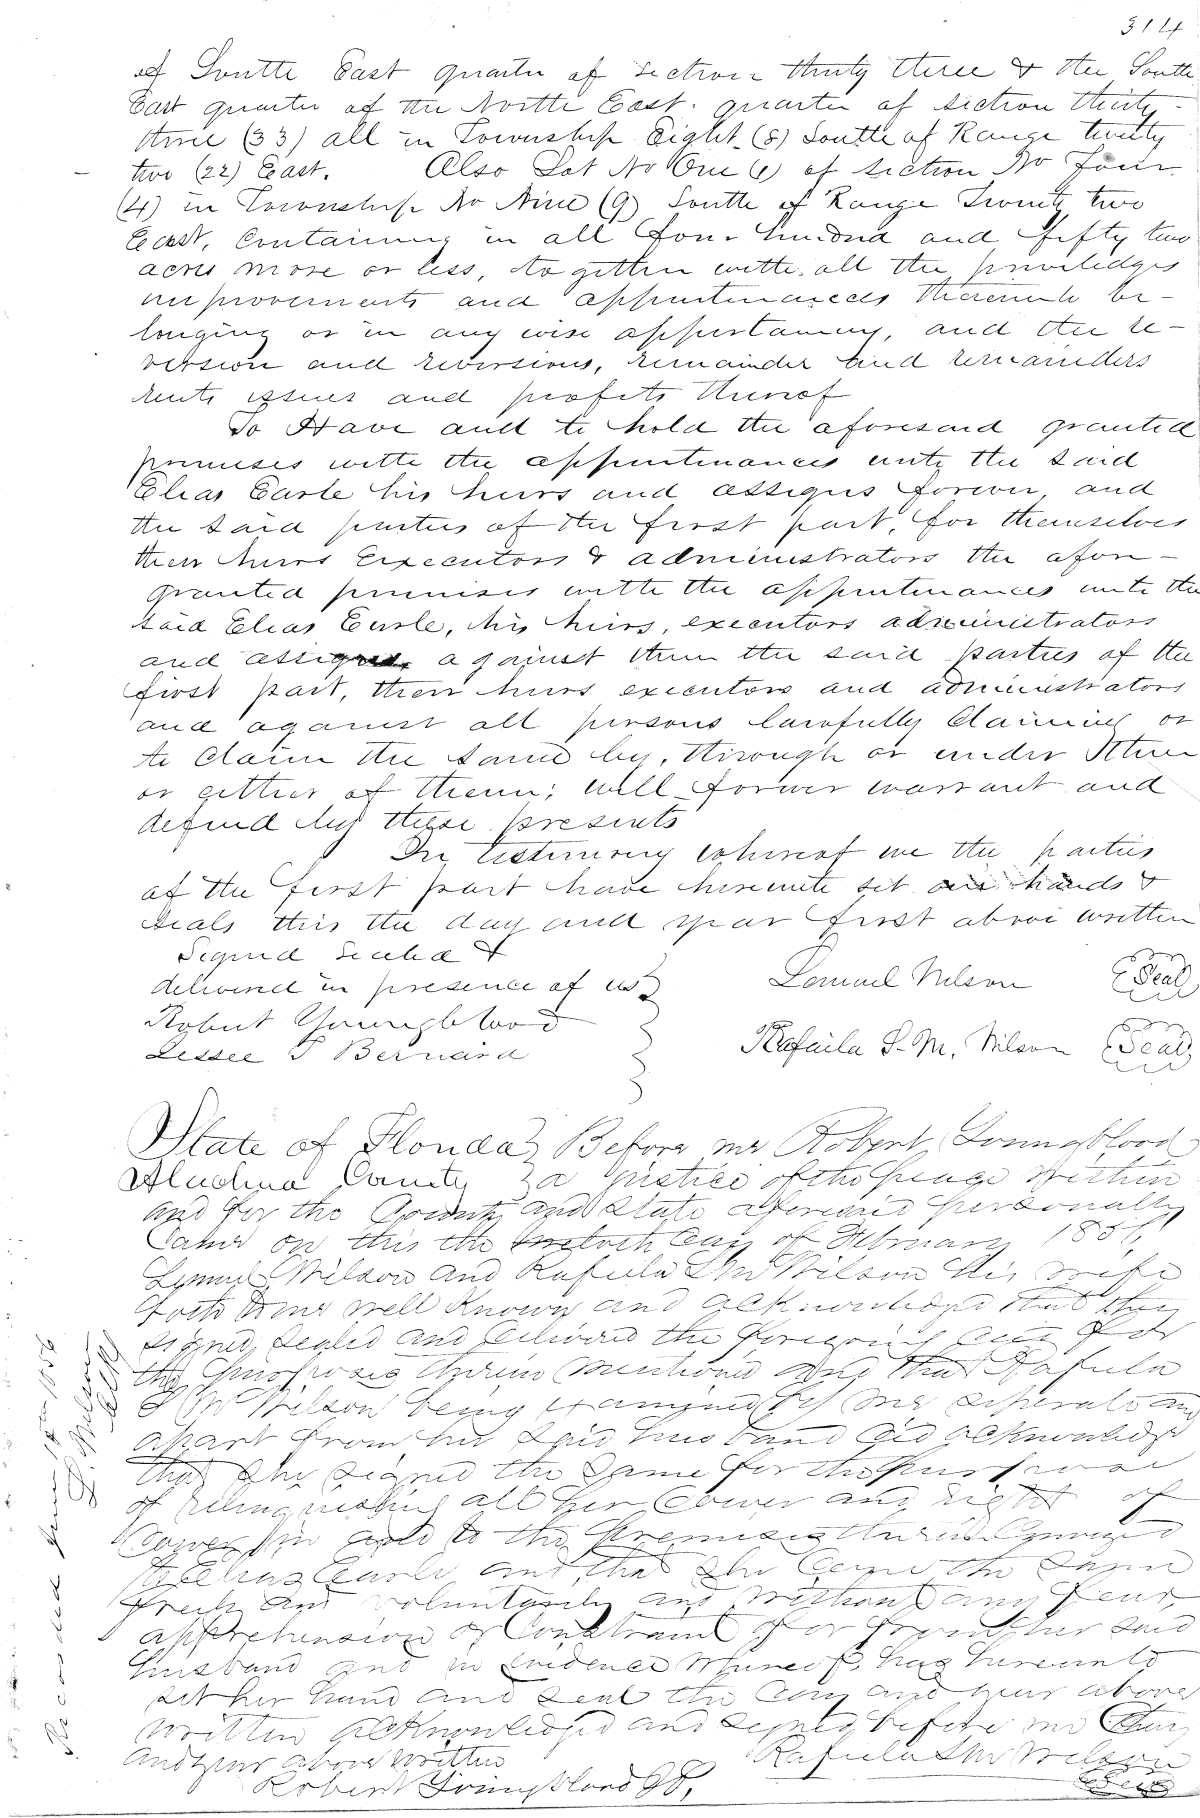 314
of South East quarter of section thirty three & the South
East quarter of the North East quarter of section thirty
three (33) all in Township Eight (8) South of Range twenty
two (22) East. Also Lot No One (1) of section No four
(4) in Township No Nine (9) South of Range Twenty two
East, Containing in all four hundred and fifty two
acres more or less, together with all the priviledges
improvements and appurtenances thereunto be-
longing or in any wise appertaining, and the re-
version and reversions, remainder and remainders
rents issues and profits thereof
To Have and to hold the aforesaid granted
premises with the appurtenances unto the said
Elias Earle his heirs and assigns forever, and
the said parties of the first part, for themselves
their heirs Executors & administrators the afore-
granted premises with the appurtenances unto the
said Elias Earle, his heirs, executors administrators
and assigns, against them the said parties of the
first part, their heirs executors and administrators
and against all persons lawfully Claiming or
to Claim the same by, through or under them
or either of them; will forever warrant and
defend by these presents
In testimony whereof we the parties
of the first part have hereunto set our hands &
seals this the day and year first above written
Signed sealed &
delivered in presence of us
Lemuel Wilson Seal
Robert Youngblood
Rafaila S. M. Wilson Seal
Lessee T Bernard
State of Florida Before me Robert Youngblood
Alachua County a justice of the peace within
and for the County and State aforesaid personally
Came on this the day of February
Lemuel Wilson and Rafaila S M Wilson his wife
both to me well known and acknowledged that they
signed, sealed and delivered the foregoing deed for
the purposes therein mentioned and that Rafaila
S M Wilson being examined by me seperate and
apart from her said husband did acknowledge
that she signed the same for the purpose
of relinquishing all her dower and right of
dower in and to the premises therein Conveyed
to Elias Earle and that she done the same
freely and voluntarily and without any fear,
apprehension or Constraint of or from her said
husband and in evidence whereof, has hereunto
set her hand and seal the day and year above
written acknowledged and signed before me the day
and year above written Rafaila S M Wilson
Robert Youngblood J P. Seal
Recorded 1856
L. Wilson
Clk